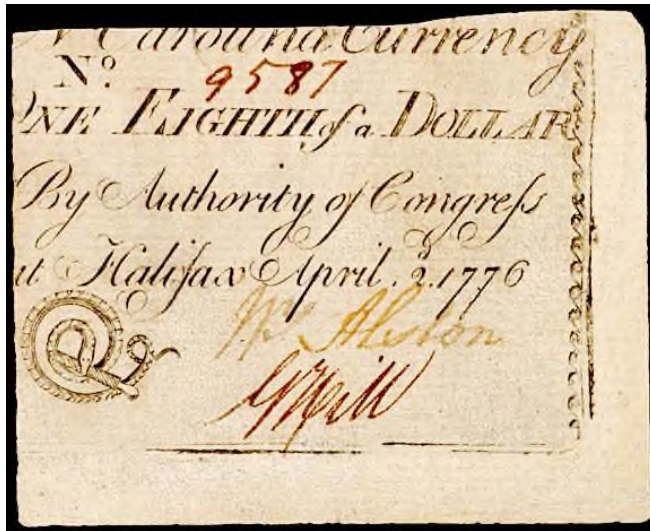 N Carolina Currency
No. 9587
ONE EIGHTH of a DOLLAR
By Authority of Congreſs
at Halifax April. 2d. 1776
Wm Alston
G Hill